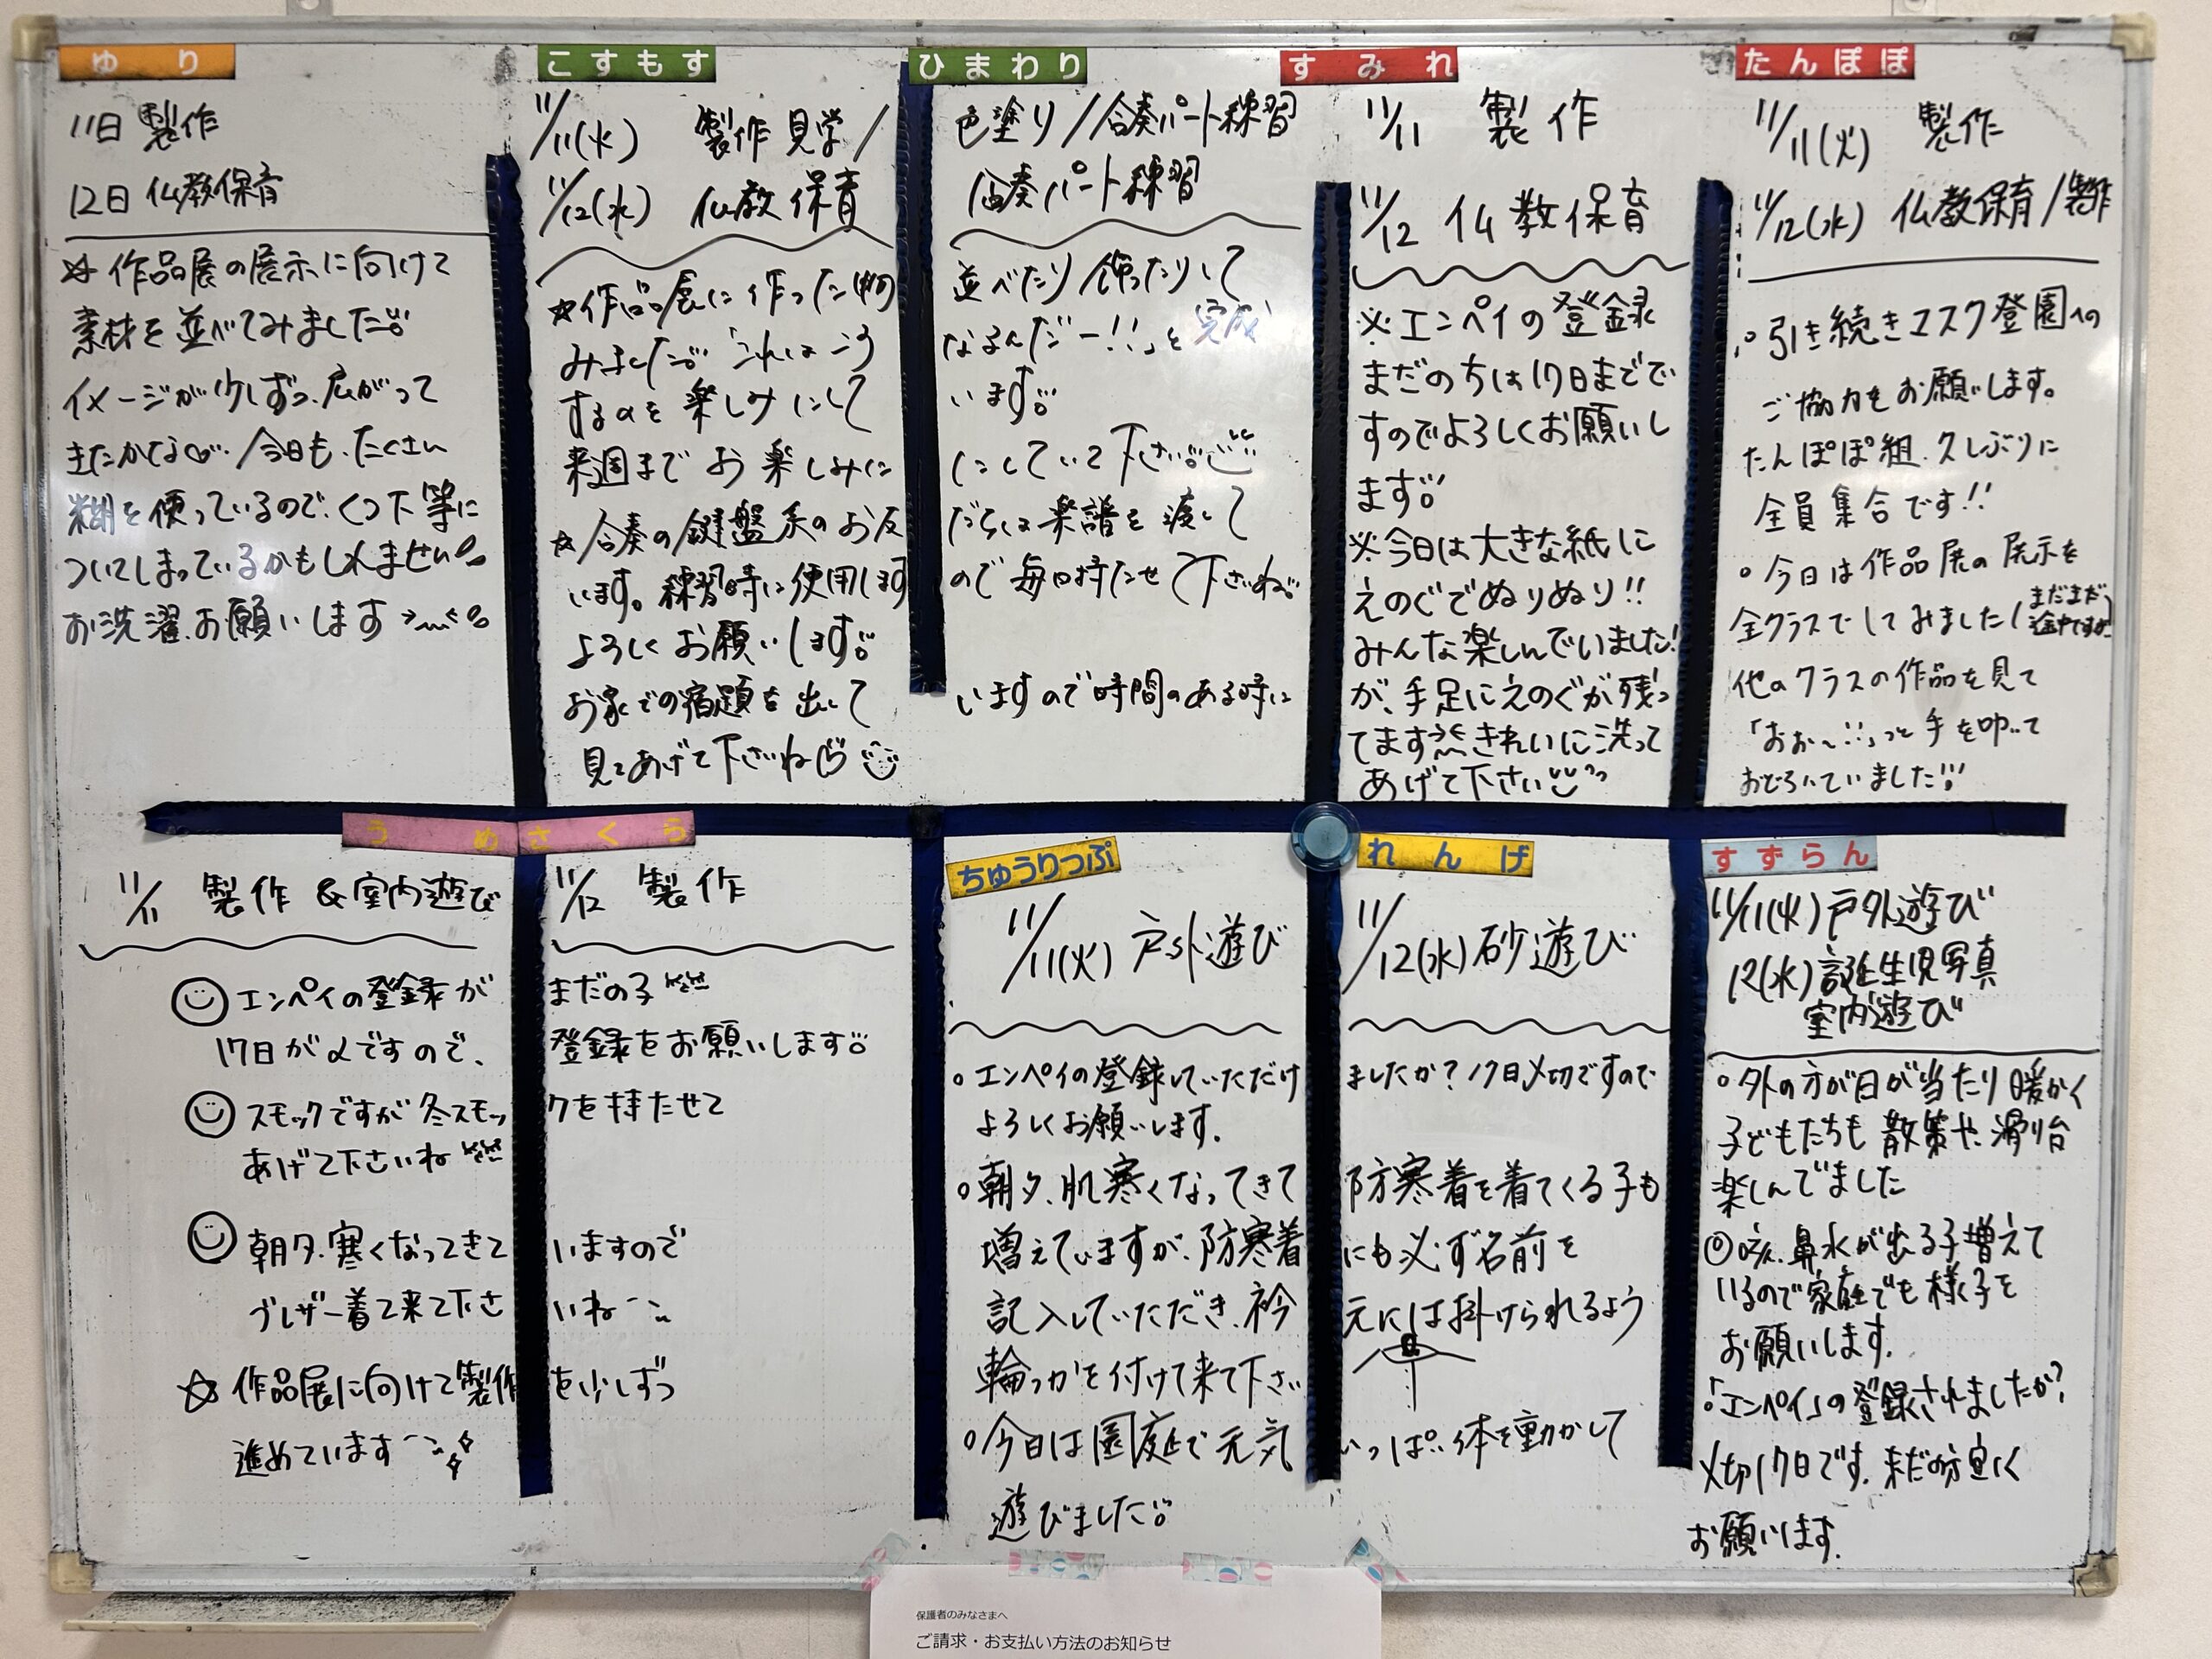 ゆり
11日 製作
12日 仏教保育
☆作品展の展示に向けて
素材を並べてみました
イメージが少しずつ、広がって
きたかな♡ /今日も、たくさん
糊を使っているので、くつ下等に
ついてしまっているかもしれません
お洗濯、お願いします
こすもす
ひまわり
11/11(火) 製作見学/色塗り/合奏パート練習
11/12(水) 仏教保育 合奏パート練習
☆作品展に作った物 並べたり 飾ったりして
みました 「これはこう なるんだー!!」と 完成
するのを楽しみにして います
来週までお楽しみに にしていて下さい
☆合奏の鍵盤系のお友 だちは楽譜を渡して
います。練習時に使用します ので毎日持たせて下さいね
よろしくお願いします
お家での宿題を出して いますので時間のある時に
見てあげて下さいね♡
すみれ
11/11 製作
11/12 仏教保育
※エンペイの登録
まだの方は17日までで
すのでよろしくお願いし
ます
※今日は大きな紙に
えのぐでぬりぬり!!
みんな楽しんでいました!
が、手足にえのぐが残っ
てます きれいに洗って
あげて下さい
たんぽぽ
11/11(火) 製作
11/12(水) 仏教保育/製作
○引き続きマスク登園への
ご協力をお願いします。
たんぽぽ組、久しぶりに
全員集合です!!
○今日は作品展の展示を
全クラスでしてみました(まだまだ途中ですが)
他のクラスの作品を見て
「おぉ〜!!」っと手を叩いて
おどろいていました!!
うめ
さくら
11/11 製作&室内遊び
11/12 製作
エンペイの登録が まだの子
17日が〆ですので、 登録をお願いします
スモックですが冬スモッ クを持たせて
あげて下さいね
朝夕、寒くなってきて いますので
ブレザー着て来て下さ いね
☆作品展に向けて製作 を少しずつ
進めています
ちゅうりっぷ
れんげ
11/11(火) 戸外遊び
11/12(水) 砂遊び
○エンペイの登録していただけ ましたか?17日〆切ですので
よろしくお願いします。
○朝夕、肌寒くなってきて 防寒着を着てくる子も
増えていますが、防寒着 にも必ず名前を
記入していただき、衿 元には掛けられるよう
輪っかを付けて来て下さい
○今日は園庭で元気 いっぱい体を動かして
遊びました
すずらん
11/11(火) 戸外遊び
12(水) 誕生児写真
室内遊び
○外の方が日が当たり暖かく
子どもたちも散策や、滑り台
楽しんでました
◎咳、鼻水が出る子増えて
いるので家庭でも様子を
お願いします。
○「エンペイ」の登録されましたか?
〆切17日です。まだの方宜しく
お願いします。
保護者のみなさまへ
ご請求・お支払い方法のお知らせ